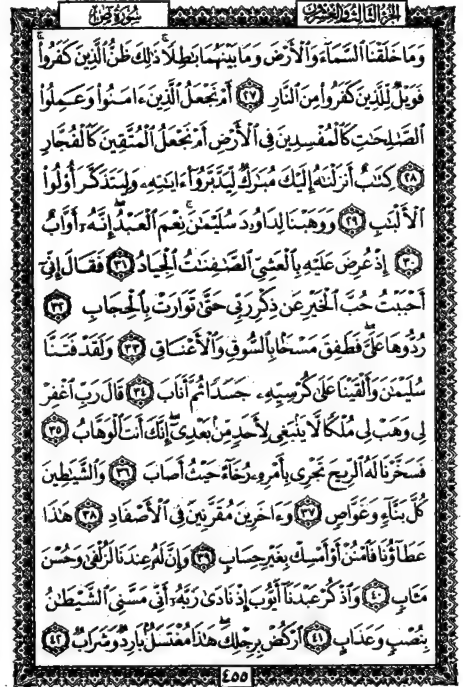 سورة ص
الجزء الثالث والعشرون
وَمَا خَلَقْنَا ٱلسَّمَآءَ وَٱلْأَرْضَ وَمَا بَيْنَهُمَا بَٰطِلًا ۚ ذَٰلِكَ ظَنُّ ٱلَّذِينَ كَفَرُوا۟ ۚ
فَوَيْلٌ لِّلَّذِينَ كَفَرُوا۟ مِنَ ٱلنَّارِ ٢٧ أَمْ نَجْعَلُ ٱلَّذِينَ ءَامَنُوا۟ وَعَمِلُوا۟
ٱلصَّٰلِحَٰتِ كَٱلْمُفْسِدِينَ فِى ٱلْأَرْضِ أَمْ نَجْعَلُ ٱلْمُتَّقِينَ كَٱلْفُجَّارِ
٢٨ كِتَٰبٌ أَنزَلْنَٰهُ إِلَيْكَ مُبَٰرَكٌ لِّيَدَّبَّرُوٓا۟ ءَايَٰتِهِۦ وَلِيَتَذَكَّرَ أُو۟لُوا۟
ٱلْأَلْبَٰبِ ٢٩ وَوَهَبْنَا لِدَاوُۥدَ سُلَيْمَٰنَ ۚ نِعْمَ ٱلْعَبْدُ ۖ إِنَّهُۥٓ أَوَّابٌ
٣٠ إِذْ عُرِضَ عَلَيْهِ بِٱلْعَشِىِّ ٱلصَّٰفِنَٰتُ ٱلْجِيَادُ ٣١ فَقَالَ إِنِّىٓ
أَحْبَبْتُ حُبَّ ٱلْخَيْرِ عَن ذِكْرِ رَبِّى حَتَّىٰ تَوَارَتْ بِٱلْحِجَابِ ٣٢
رُدُّوهَا عَلَىَّ ۖ فَطَفِقَ مَسْحًۢا بِٱلسُّوقِ وَٱلْأَعْنَاقِ ٣٣ وَلَقَدْ فَتَنَّا
سُلَيْمَٰنَ وَأَلْقَيْنَا عَلَىٰ كُرْسِيِّهِۦ جَسَدًا ثُمَّ أَنَابَ ٣٤ قَالَ رَبِّ ٱغْفِرْ
لِى وَهَبْ لِى مُلْكًا لَّا يَنۢبَغِى لِأَحَدٍ مِّنۢ بَعْدِىٓ ۖ إِنَّكَ أَنتَ ٱلْوَهَّابُ ٣٥
فَسَخَّرْنَا لَهُ ٱلرِّيحَ تَجْرِى بِأَمْرِهِۦ رُخَآءً حَيْثُ أَصَابَ ٣٦ وَٱلشَّيَٰطِينَ
كُلَّ بَنَّآءٍ وَغَوَّاصٍ ٣٧ وَءَاخَرِينَ مُقَرَّنِينَ فِى ٱلْأَصْفَادِ ٣٨ هَٰذَا
عَطَآؤُنَا فَٱمْنُنْ أَوْ أَمْسِكْ بِغَيْرِ حِسَابٍ ٣٩ وَإِنَّ لَهُۥ عِندَنَا لَزُلْفَىٰ وَحُسْنَ
مَـَٔابٍ ٤٠ وَٱذْكُرْ عَبْدَنَآ أَيُّوبَ إِذْ نَادَىٰ رَبَّهُۥٓ أَنِّى مَسَّنِىَ ٱلشَّيْطَٰنُ
بِنُصْبٍ وَعَذَابٍ ٤١ ٱرْكُضْ بِرِجْلِكَ ۖ هَٰذَا مُغْتَسَلٌۢ بَارِدٌ وَشَرَابٌ ٤٢
٤٥٥